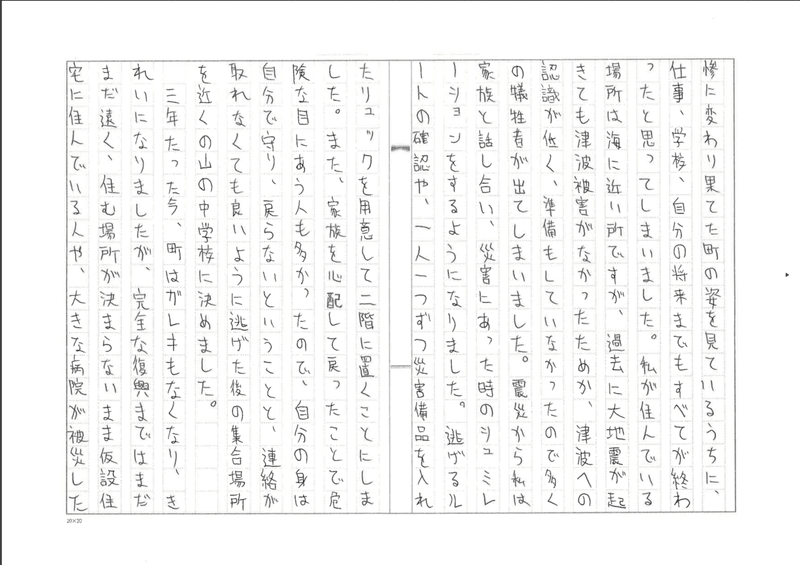 惨に変わり果てた町の姿を見ているうちに、
仕事、学校、自分の将来までもすべてが終わ
ったと思ってしまいました。私が住んでいる
場所は海に近い所ですが、過去に大地震が起
きても津波被害がなかったためか、津波への
認識が低く、準備もしていなかったので多く
の犠牲者が出てしまいました。震災から私は
家族と話し合い、災害にあった時のシュミレ
ーションをするようになりました。逃げるル
ートの確認や、一人一つずつ災害備品を入れ
たリュックを用意して二階に置くことにしま
した。また、家族を心配して戻ったことで危
険な目にあう人も多かったので、自分の身は
自分で守り、戻らないということと、連絡が
取れなくても良いように逃げた後の集合場所
を近くの山の中学校に決めました。
三年たった今、町はガレキもなくなり、き
れいになりましたが、完全な復興まではまだ
まだ遠く、住む場所が決まらないまま仮設住
宅に住んでいる人や、大きな病院が被災した
20×20